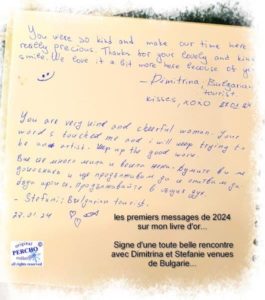 You were so kind and make our time here
really precious. Thanks for your lovely and kind
smile. We love it a bit more here because of you
— Dimitrina, Bulgarian
tourist
Kisses, xoxo
You are very kind and cheerful woman. Your
words touched me and i will keep trying to
be an artist. Keep up the good work.
Вие сте много мила и весела жена. Думите Ви ме
докоснаха и ще продължавам да се опитвам да
бъда артист. Продължавайте в същия дух.
- Stefani; Bulgarian tourist.
22.01.24
original
PERCHO
all rights reserved
les premiers messages de 2024
sur mon livre d'or...
Signe d'une toute belle rencontre
avec Dimitrina et Stefanie venues
de Bulgarie...